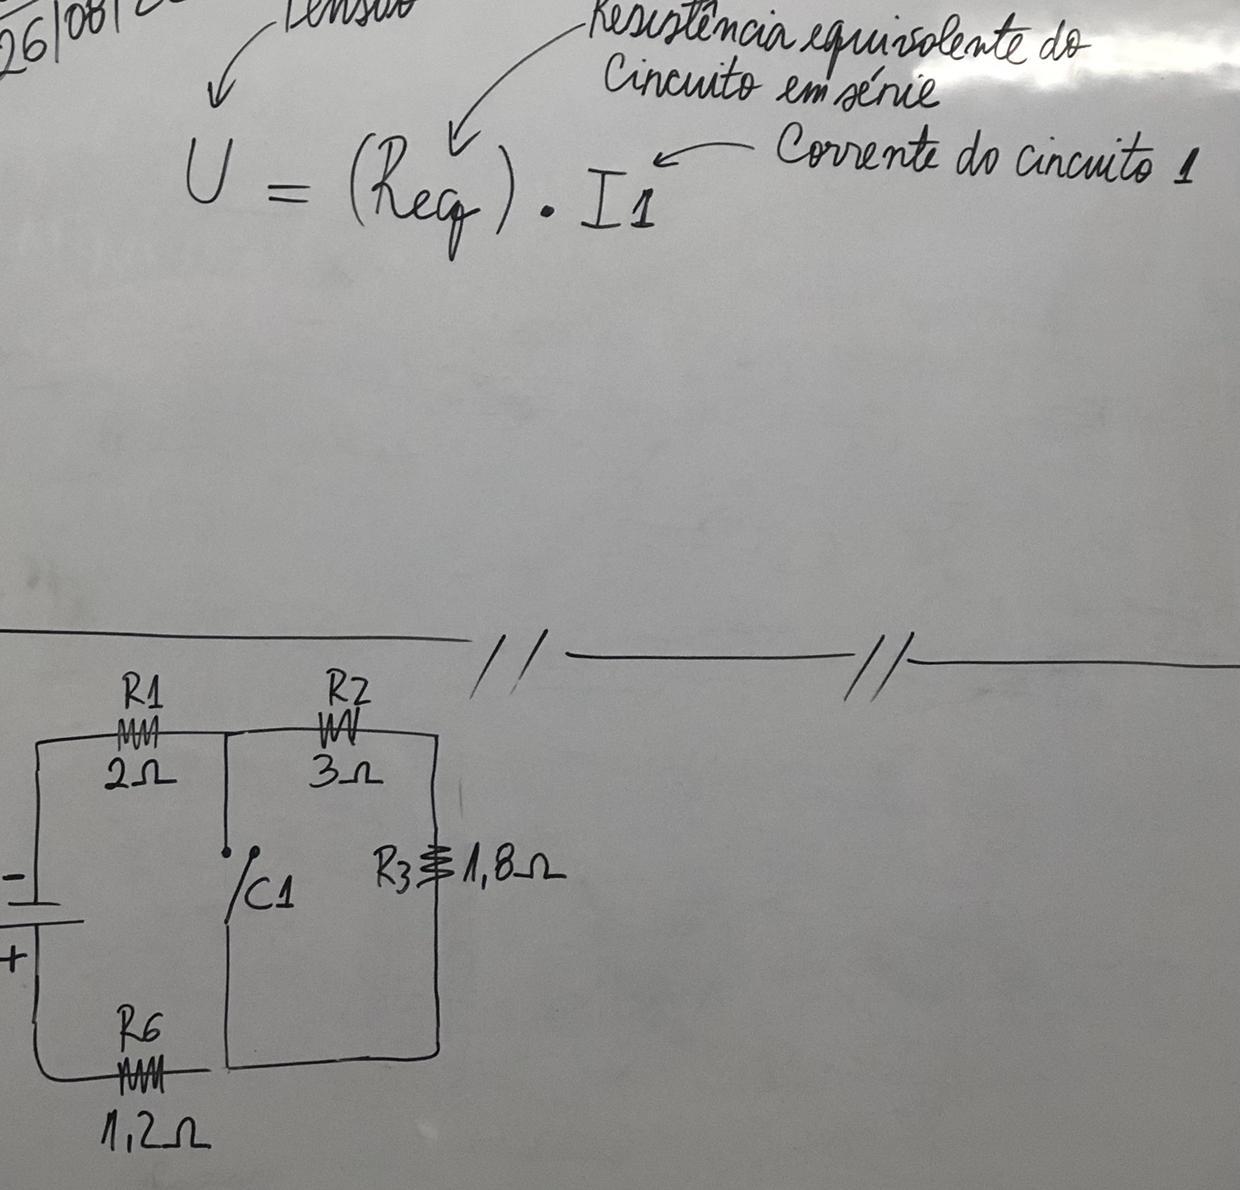 26/08/
Tensão
Resistência equivalente do
Circuito em série
U = (Req) . I1
Corrente do circuito 1
R1
R2
2Ω
3Ω
R3
1,8Ω
C1
-
+
R6
1,2Ω